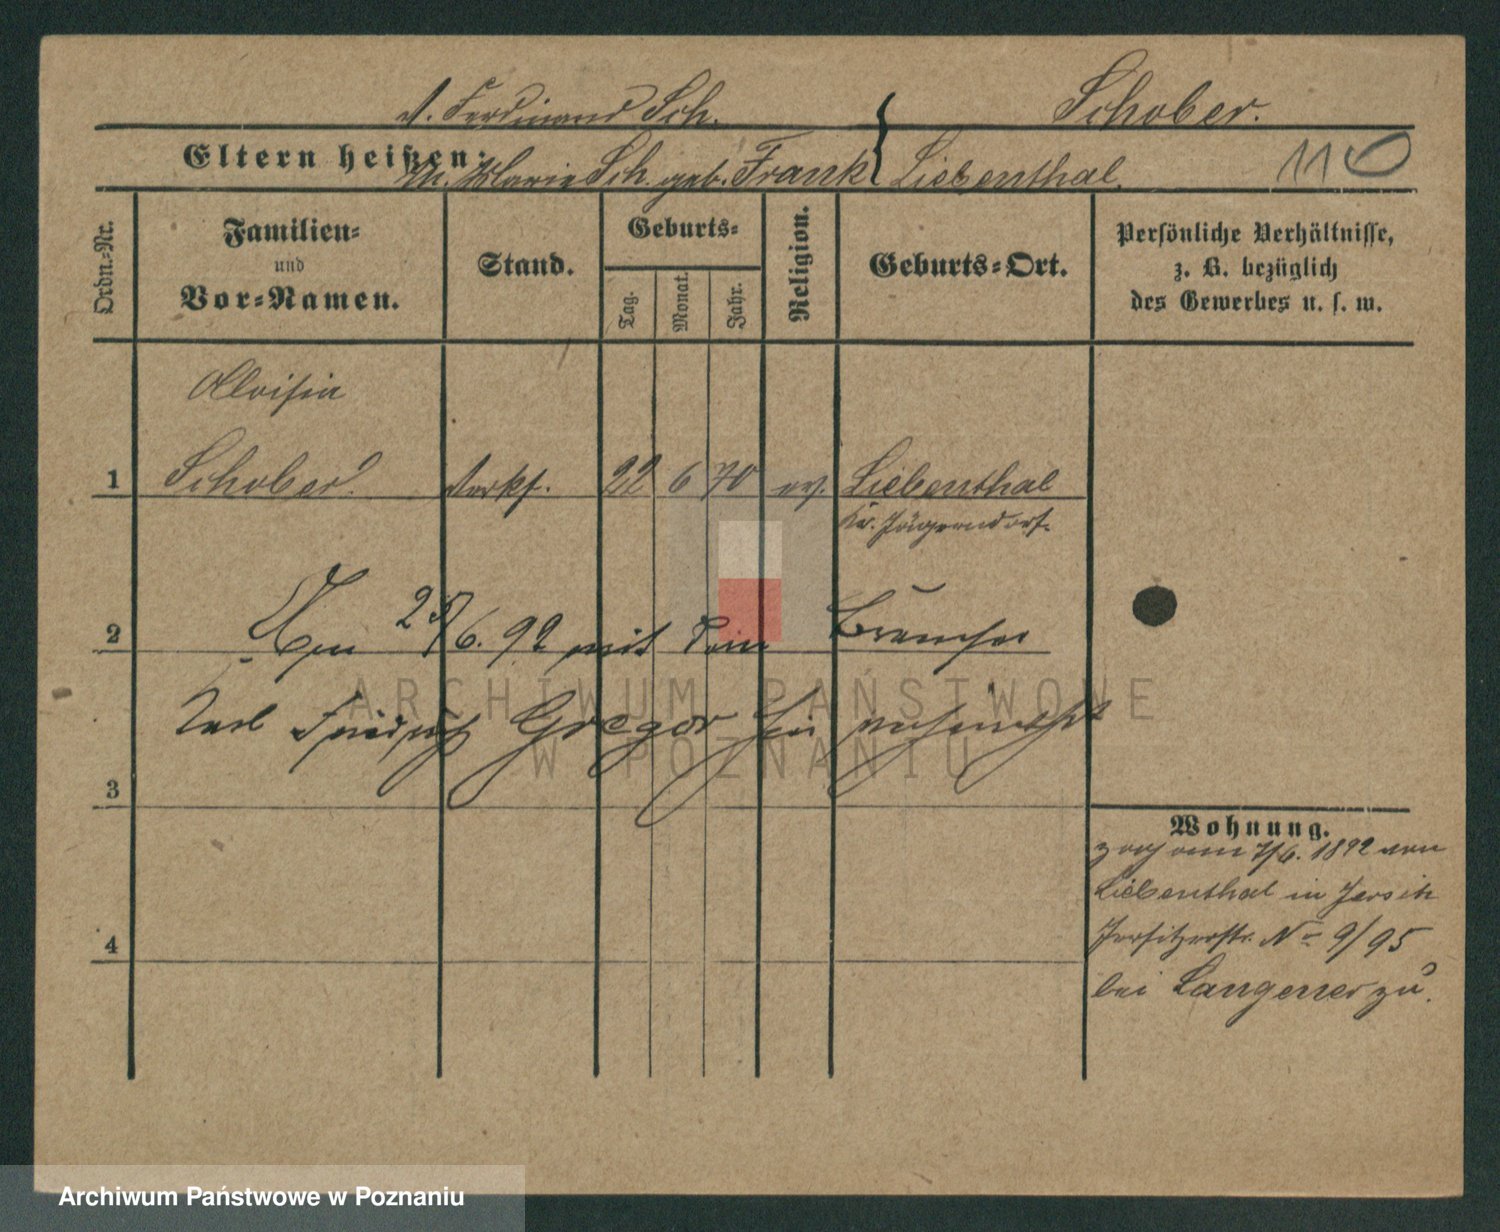 V. Ferdinand Sch. Schober.
Eltern heißen: M. Marie Sch. geb. Frank Liebenthal. 110
Ordn.-Nr.
Familien-
und
Vor-Namen.
Stand.
Geburts-
Tag.
Monat.
Jahr.
Religion.
Geburts-Ort.
Persönliche Verhältnisse,
z. B. bezüglich
des Gewerbes u. s. w.
Aloisia
1 Schober. 22 6 70 ev. Liebenthal
Kr. Jägerndorf.
2 Am 25/6. 92 mit dem
Karl Friedrich Gregor hier verheirathet
3
Wohnung.
zog am 7/6. 1892 von
Liebenthal in Jersitz
Jersitzerstr. No 9/95
4
bei Langener zu.
ARCHIWUM PAŃSTWOWE
W POZNANIU
Archiwum Państwowe w Poznaniu